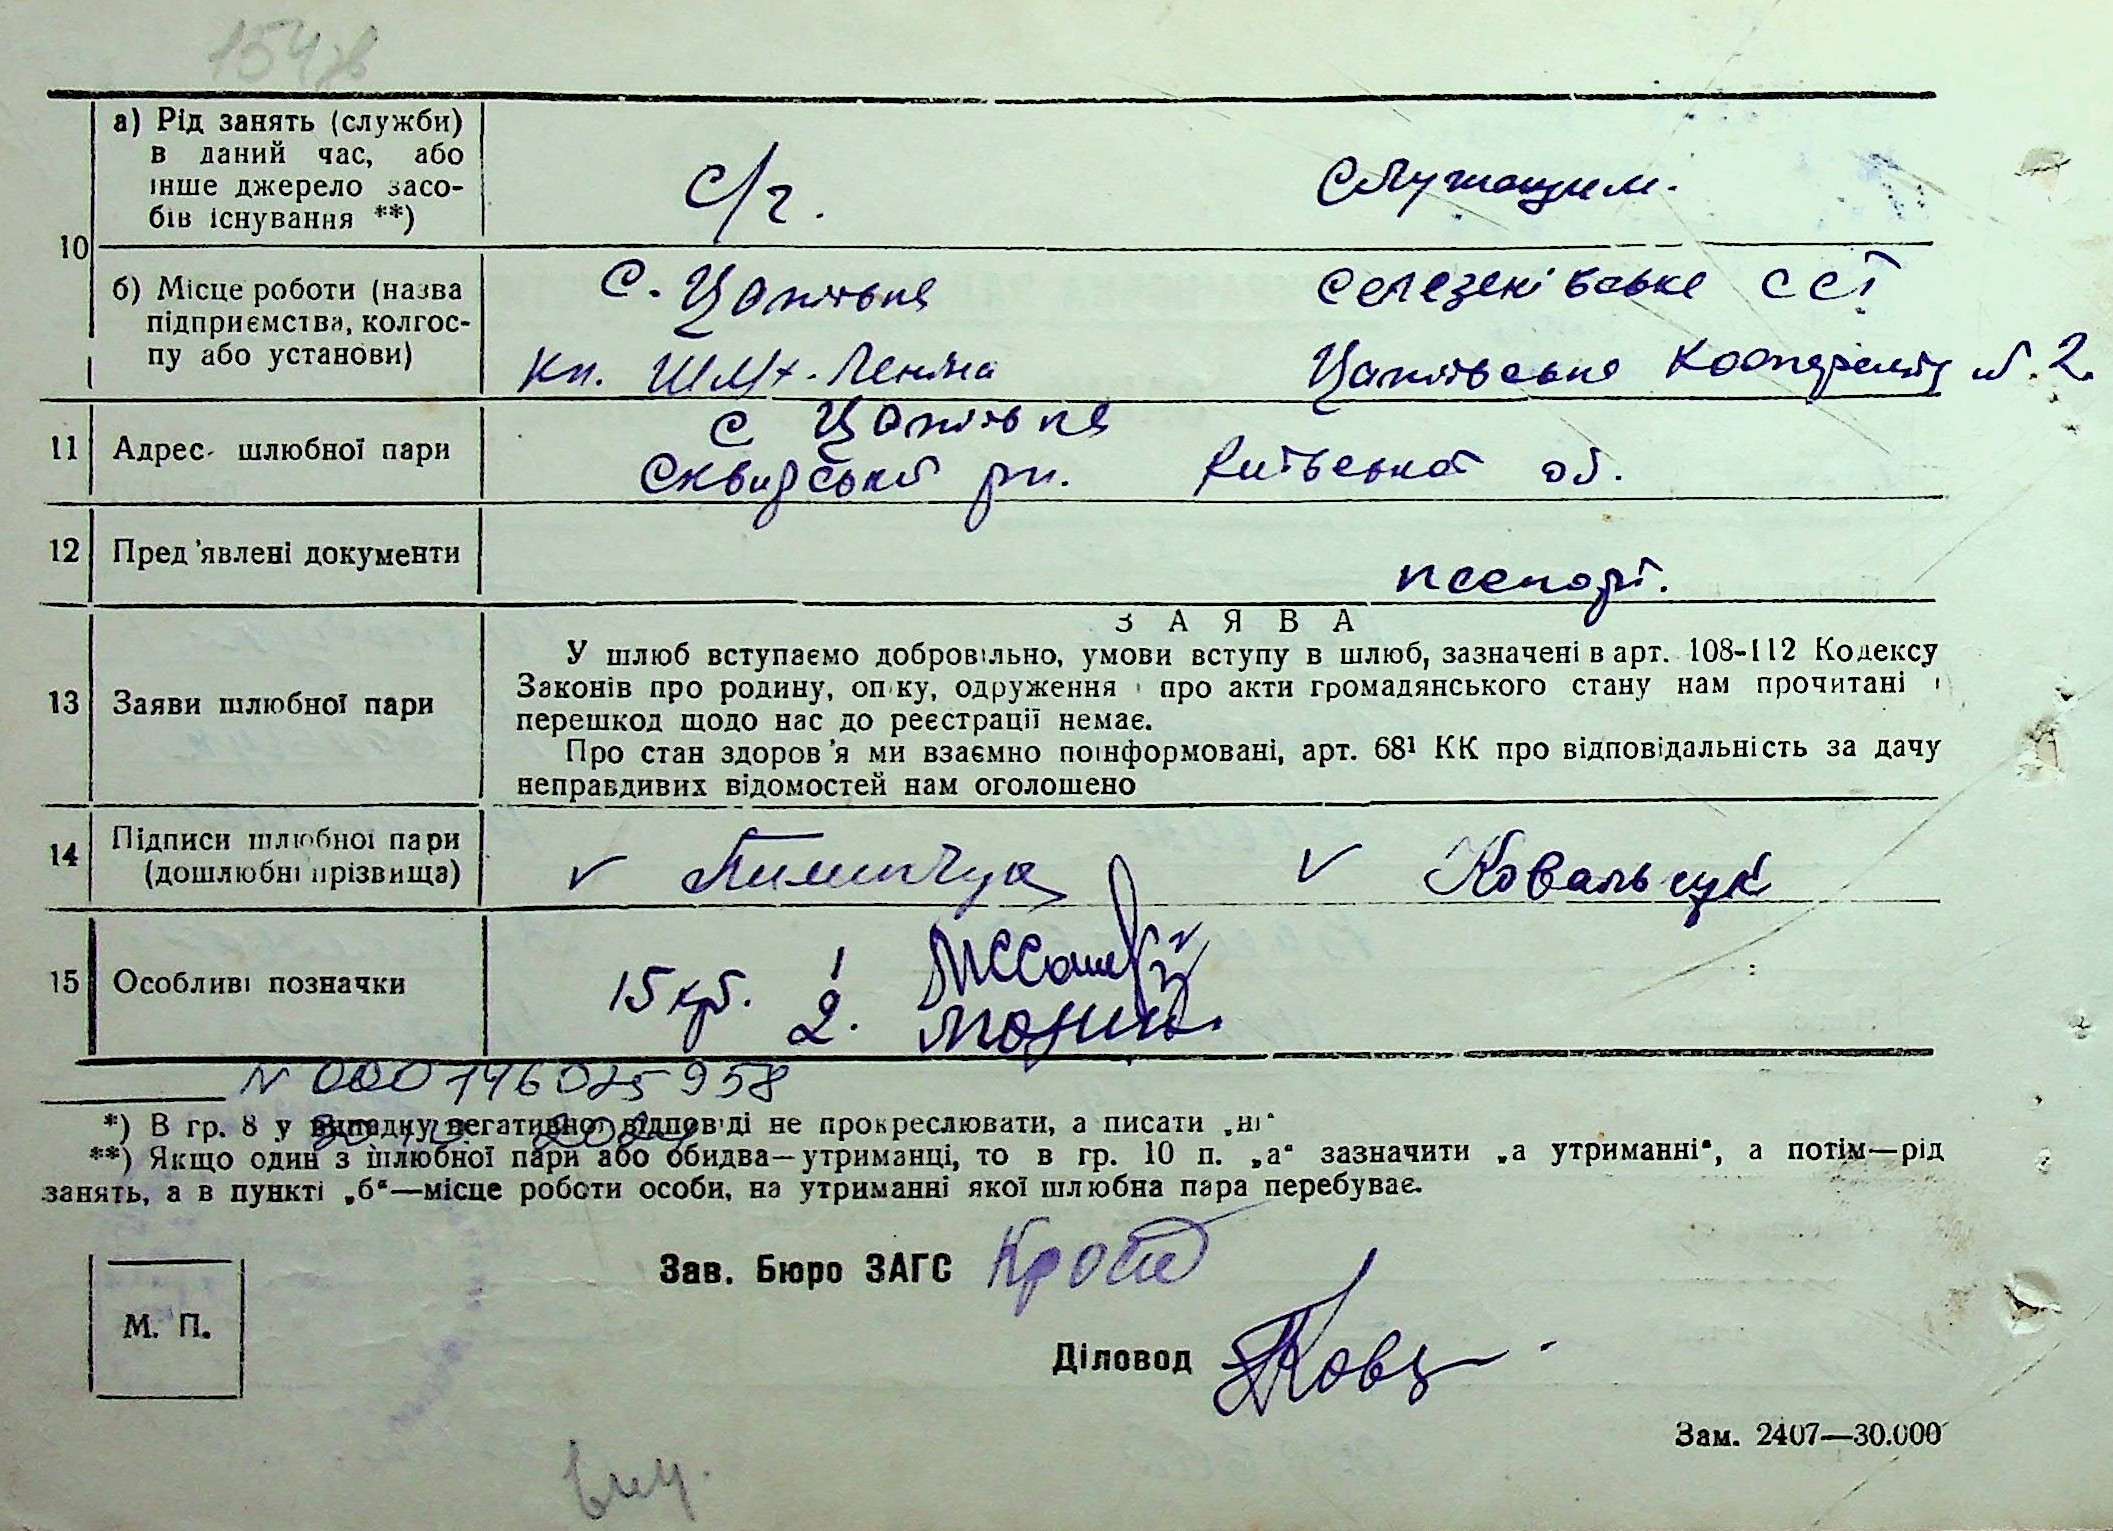 154зв
10
а) Рід занять (служби)
в даний час, або
інше джерело засо-
бів існування **)
с/г.
служащим.
б) Місце роботи (назва
підприємства, колгос-
пу або установи)
с. Цапіївка
Селезенівське ССТ
Кп. Шлях Леніна
Цапіївське № 2.
11
Адрес шлюбної пари
с Цапіївка
Сквирської рн. Київської об.
12
Пред'явлені документи
паспорт.
13
Заяви шлюбної пари
ЗАЯВА
У шлюб вступаємо добровільно, умови вступу в шлюб, зазначені в арт. 108-112 Кодексу
Законів про родину, опіку, одруження і про акти громадянського стану нам прочитані і
перешкод щодо нас до реєстрації немає.
Про стан здоров'я ми взаємно поінформовані, арт. 68¹ КК про відповідальність за дачу
неправдивих відомостей нам оголошено
14
Підписи шлюбної пари
(дошлюбні прізвища)
v
v Ковальчук
15
Особливі позначки
15 крб.
1
2.
N 000146025958
*) В гр. 8 у випадку негативної відповіді не прокреслювати, а писати „ні“
**) Якщо один з шлюбної пари або обидва—утриманці, то в гр. 10 п. „а“ зазначити „а утриманні“, а потім—рід
занять, а в пункті „б“—місце роботи особи, на утриманні якої шлюбна пара перебуває.
Зав. Бюро ЗАГС
М. П.
Діловод
Зам. 2407—30.000